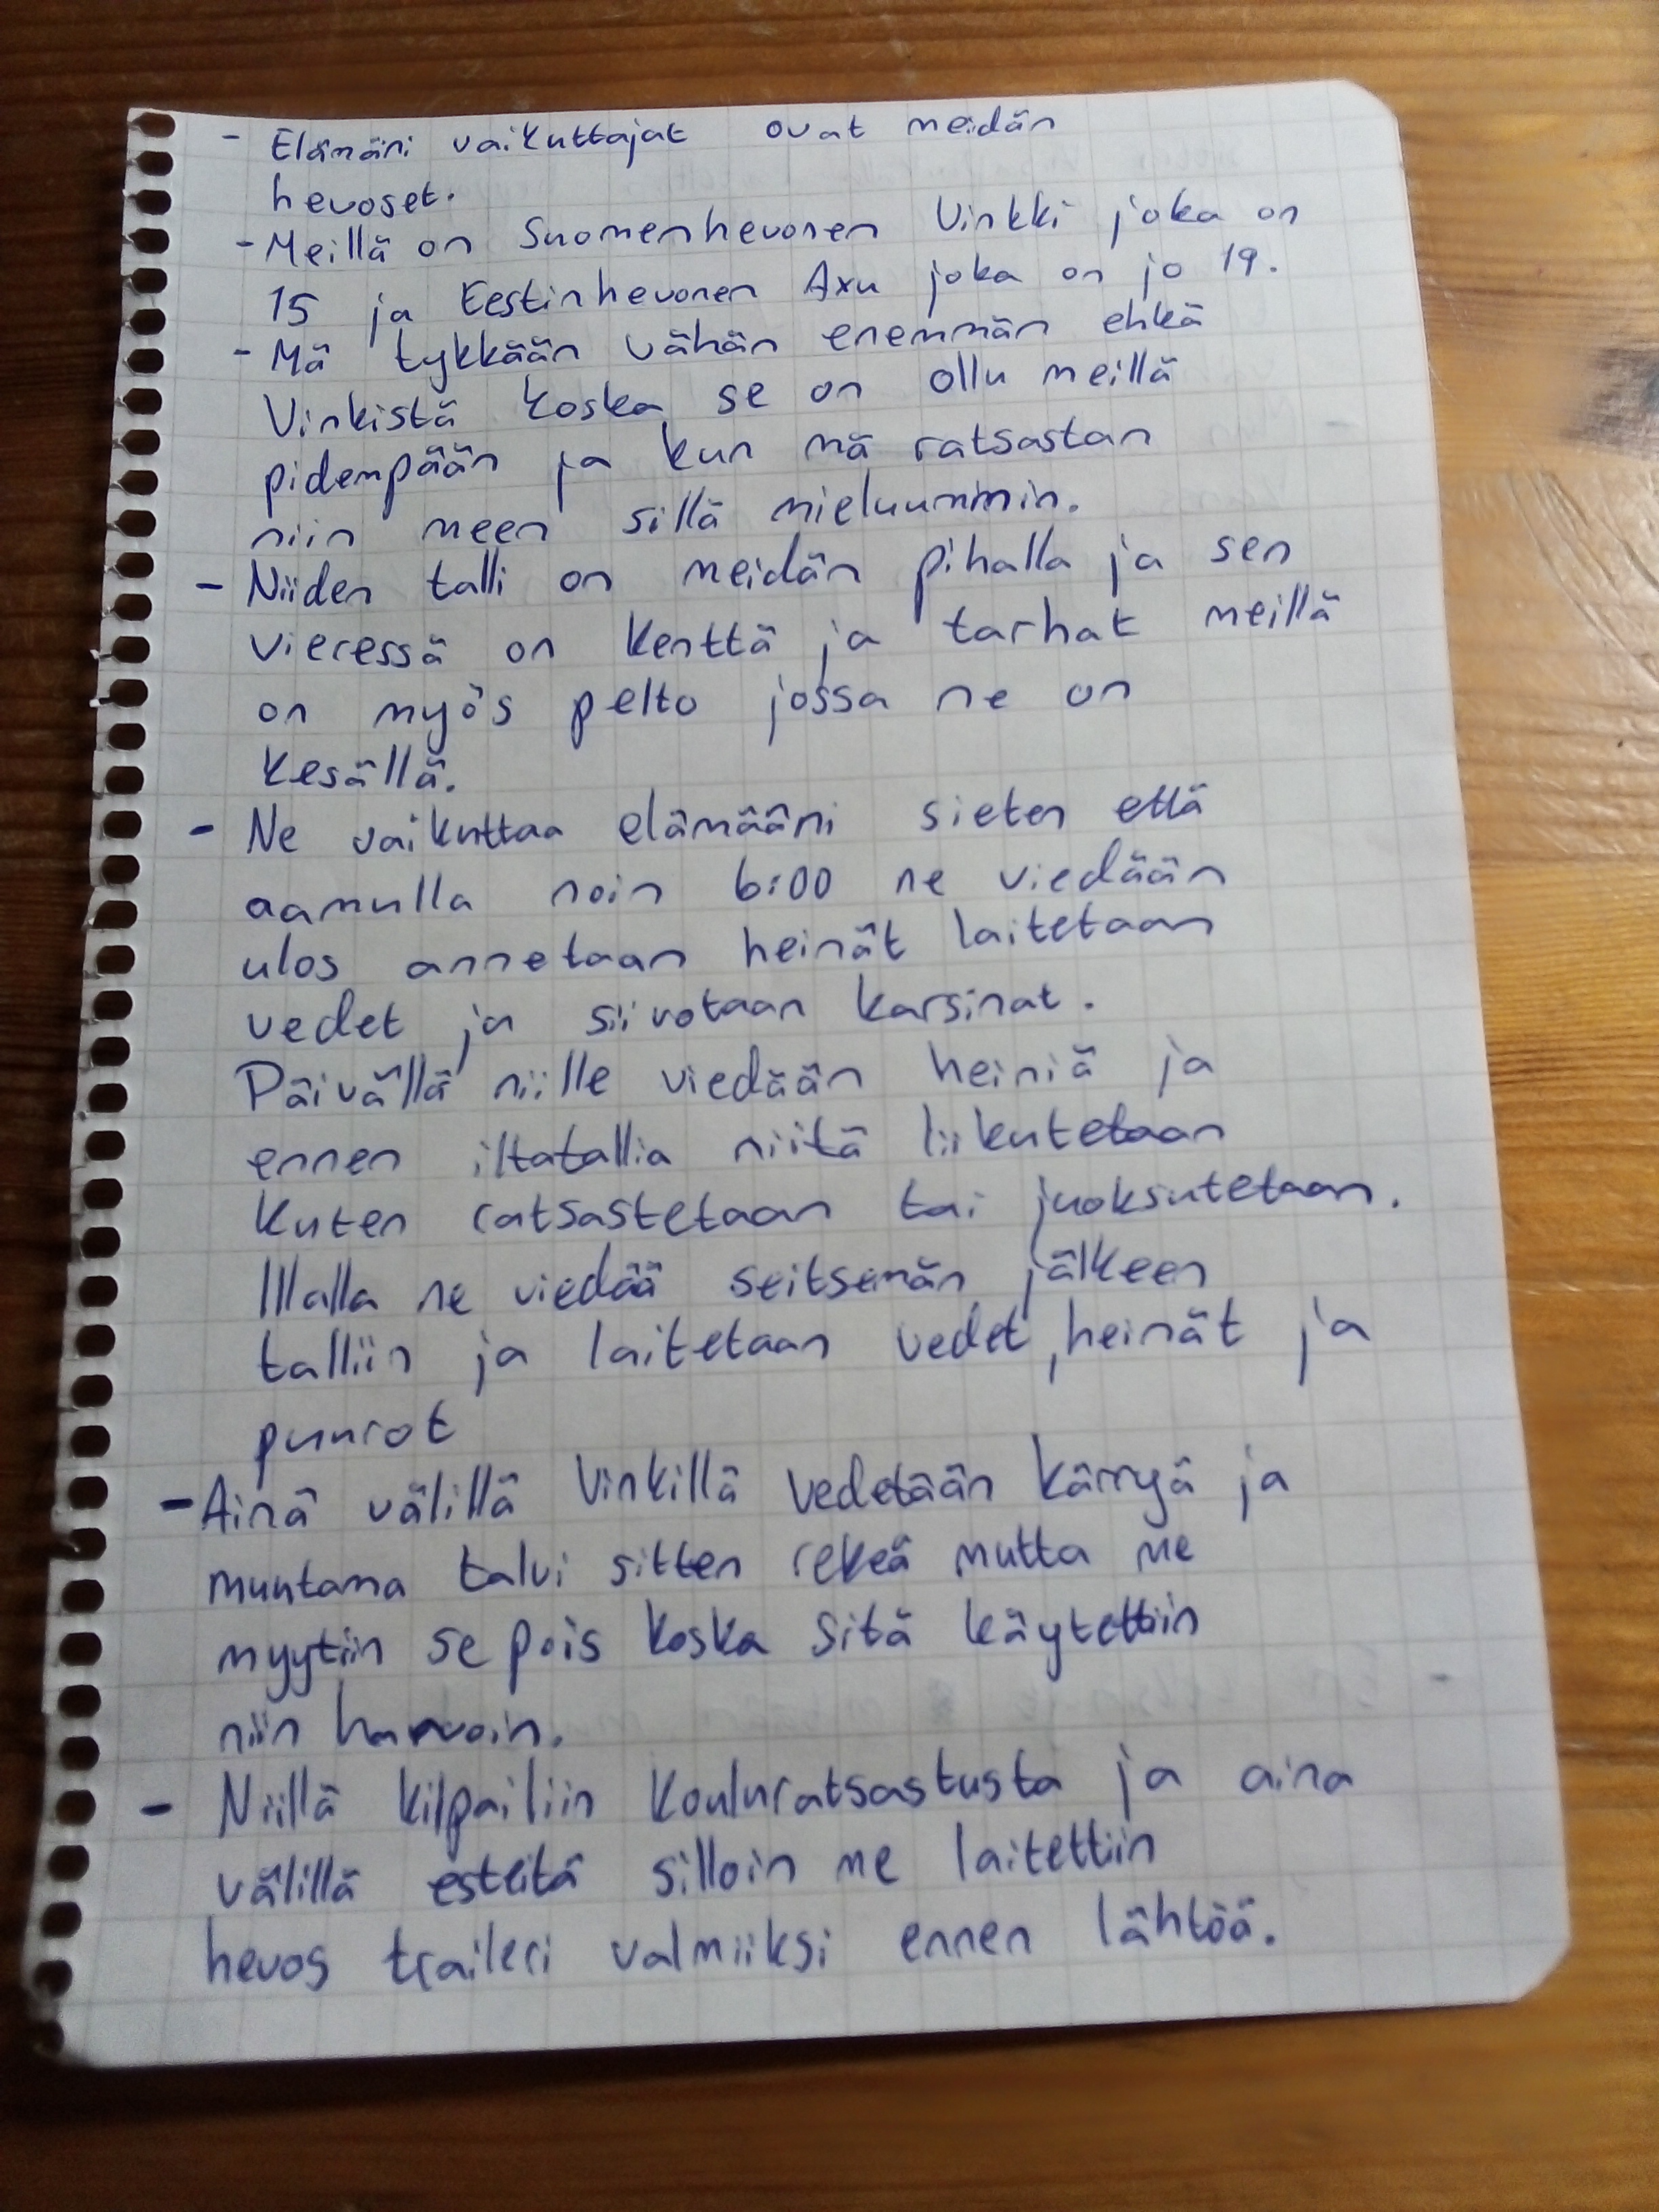 - Elämäni vaikuttajat ovat meidän
hevoset.
- Meillä on Suomenhevonen Vinkki joka on
15 ja Eestinhevonen Axu joka on jo 19.
- Mä tykkään vähän enemmän ehkä
Vinkistä koska se on ollu meillä
pidempään ja kun mä ratsastan
niin meen sillä mieluummin.
- Niiden talli on meidän pihalla ja sen
vieressä on kenttä ja tarhat meillä
on myös pelto jossa ne on
kesällä.
- Ne vaikuttaa elämääni sieten että
aamulla noin 6:00 ne viedään
ulos annetaan heinät laitetaan
vedet ja siivotaan karsinat.
Päivällä niille viedään heiniä ja
ennen iltatallia niitä liikutetaan
kuten ratsastetaan tai juoksutetaan.
Illalla ne viedää seitsemän jälkeen
talliin ja laitetaan vedet, heinät ja
puurot
- Ainä välillä Vinkillä vedetään kärryä ja
muutama talvi sitten rekeä mutta me
myytiin se pois koska sitä käytettiin
niin harvoin.
- Niillä kilpailiin kouluratsastusta ja aina
välillä esteitä silloin me laitettiin
hevos traileri valmiiksi ennen lähtöä.